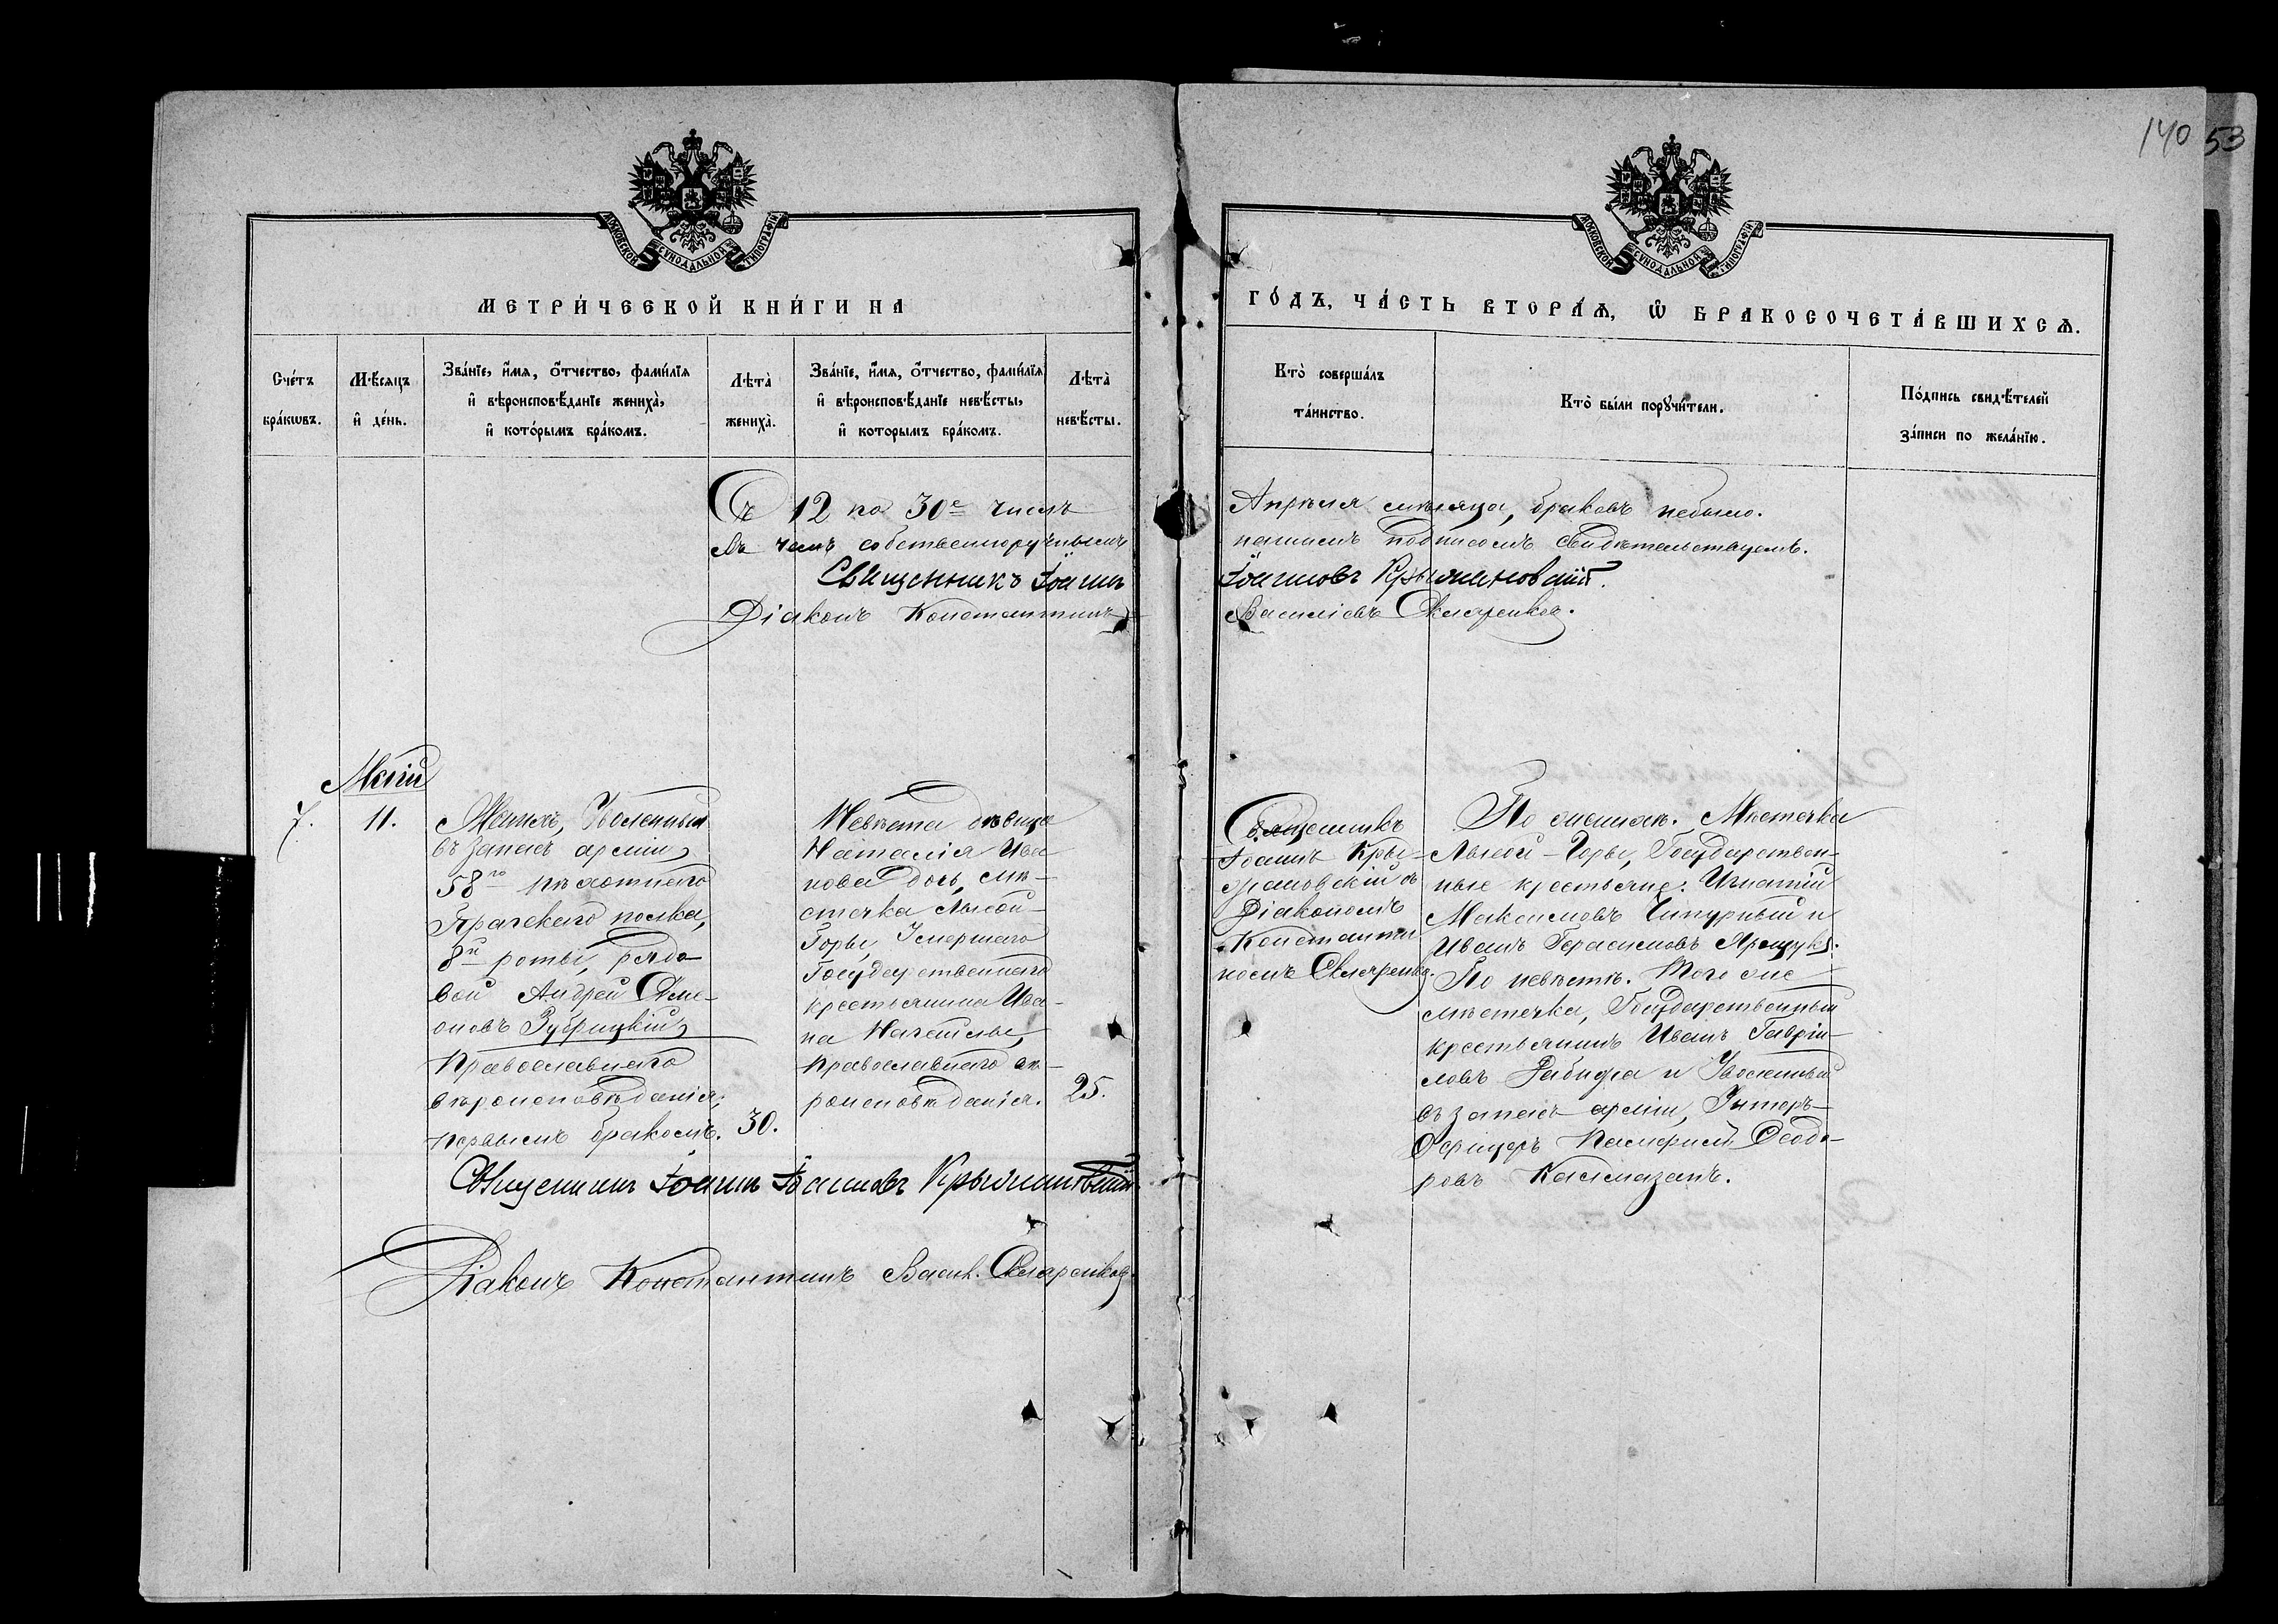 140 53
МОСКОВСКОЙ СУНОДАЛЬНОЙ ТИПОГРАФІИ
МОСКОВСКОЙ СУНОДАЛЬНОЙ ТИПОГРАФІИ
МЕТРИ́ЧЕСКОЙ КНИ́ГИ НА
ГО́ДЪ, ЧА́СТЬ ВТОРА́Ѧ, Ѽ БРАКОСОЧЕТА́ВШИХСѦ.
Сче́тъ
бра́кѡвъ.
Мѣ́сяцъ
и҆ де́нь.
Зва́нїе, и҆́мя, ѻ҆́тчество, фами́лїя
и҆ вѣроисповѣ́данїе жениха̀,
и҆ кото́рымъ бра́комъ.
Лѣта̀
жениха̀.
Зва́нїе, и҆́мя, ѻ҆́тчество, фами́лїя
и҆ вѣроисповѣ́данїе невѣ́сты,
и҆ которымъ бра́комъ.
Лѣта̀
невѣ́сты.
Кто̀ соверша́лъ
та́инство.
Кто̀ бы́ли порꙋчи́тели.
По́дпись свидѣ́телей
за́писи по жела́нїю.
Съ 12 по 30е число
Апрѣля мѣсяца, браковъ небыло.
въ чемъ собственноручнымъ
нашимъ подписомъ свидѣтельствуемъ.
Священникъ Іоаннъ
Іоанновъ Крыжановскій.
Діаконъ Константинъ
Василіевъ Скляренко.
Май
7.
11.
Женихъ, Уволенный
въ запасъ арміи,
58го пѣхотнаго
Прагскаго полка,
8й роты, рядо-
вой Андрей Симе-
оновъ Зубрицкій,
православнаго
вѣроисповѣданія,
первымъ бракомъ.
30.
Невѣста дѣвица
Наталія Ива-
нова дочь, мѣ-
стечка Лысой-
Горы, Умершаго
Государственнаго
крестьянина Ива-
на
православнаго вѣ-
роисповѣданія.
25.
Священникъ
Іоаннъ Кры-
жановскій съ
Діакономъ
Константи
номъ Скляренко.
По женихѣ. Мѣстечка
Лысой-Горы, Государствен-
ные крестьяне: Игнатій
Максимовъ Чипурный и
Иванъ Герасимовъ
По невѣстѣ. Того же
мѣстечка, Государственный
крестьянинъ Иванъ Гаврии-
ловъ и Уволенный
въ запасъ арміи, Унтеръ-
Офицеръ Памфилъ Феодо-
ровъ Калмазанъ.
Священникъ Іоаннъ Іоанновъ Крыжановскій
Діаконъ Константинъ Васил. Скляренко